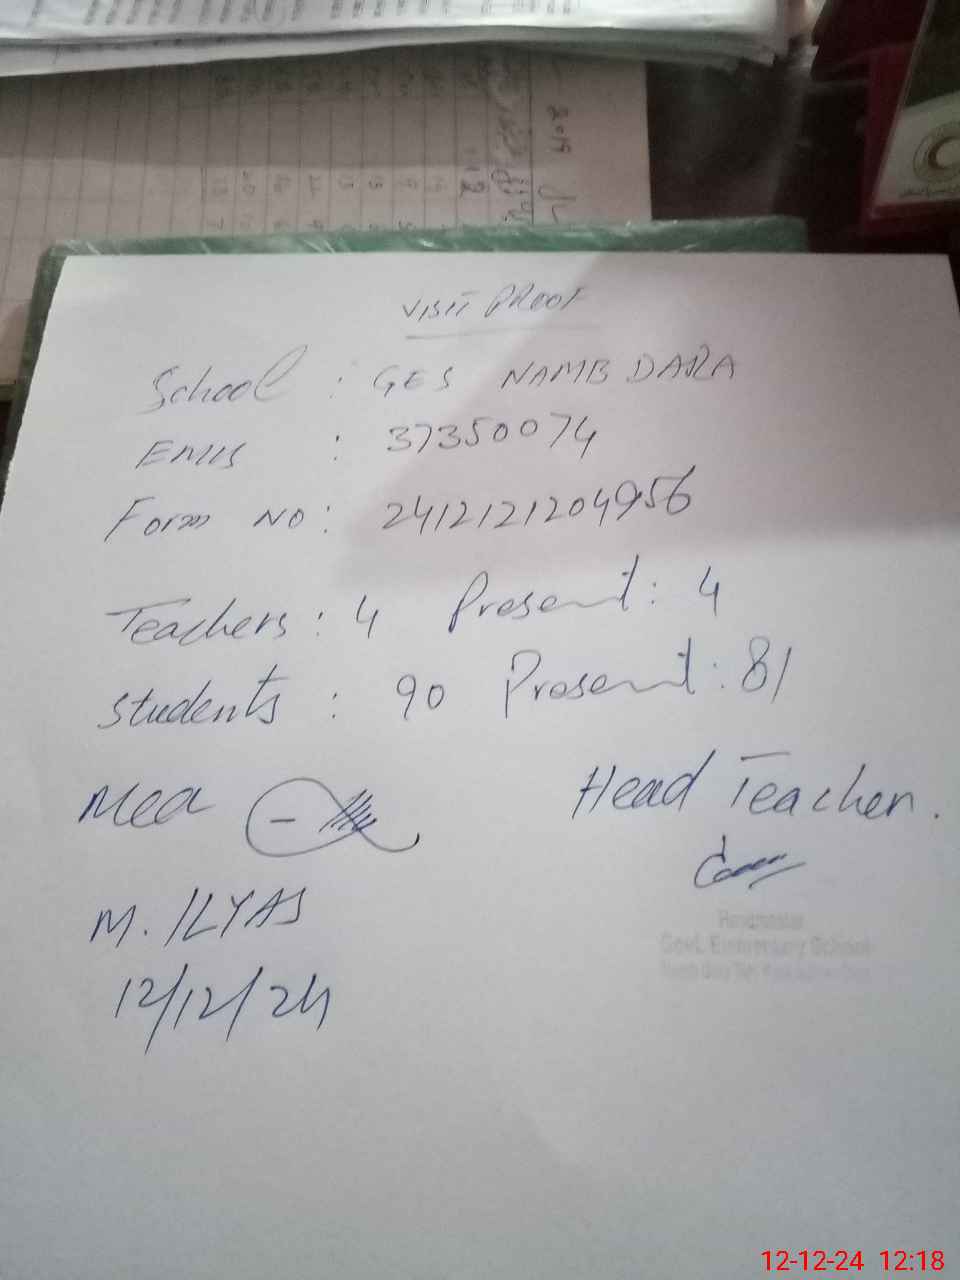 VISIT PROOF
School : GES NAMB DARA
EMIS : 37350074
Form NO: 2412121204956
Teachers : 4 Present : 4
Students : 90 Present : 81
Mea
Head Teacher.
M. ILYAS
12/12/24
Headmaster
Govt. Elementary School
12-12-24 12:18